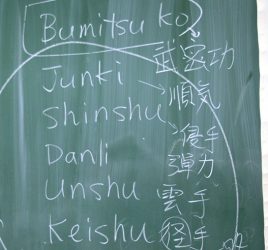 Bumitsu ko 武密功
Junki 順気
Shinshu 浸手
Danli 彈力
Unshu 雲手
Keishu 径手